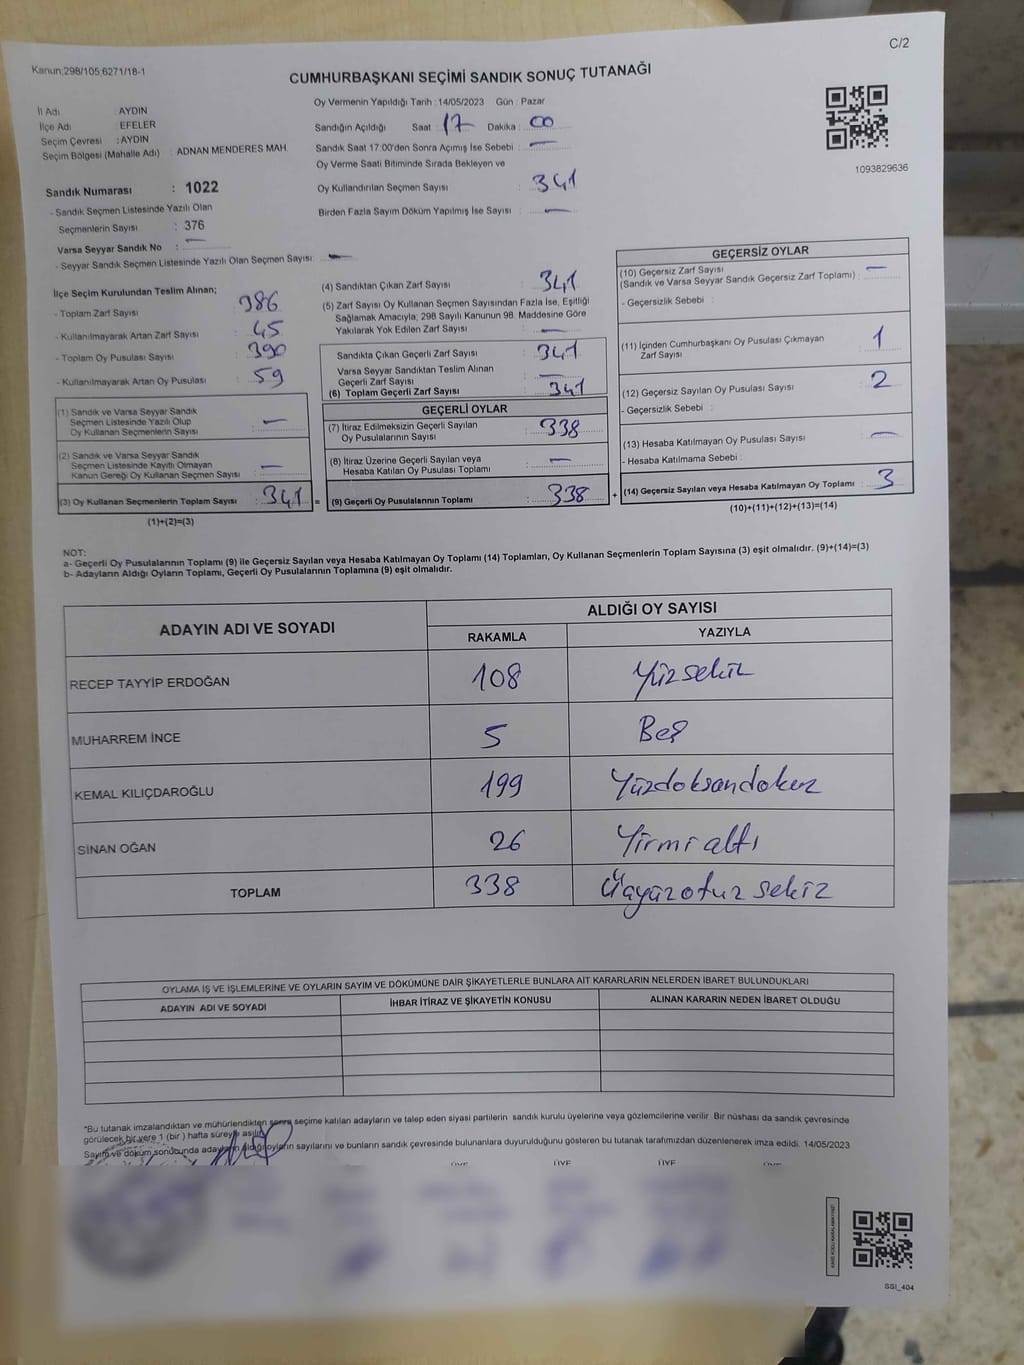 C/2
Kanun;298/105;6271/18-1
CUMHURBAŞKANI SEÇİMİ SANDIK SONUÇ TUTANAĞI
İl Adı : AYDIN
İlçe Adı : EFELER
Seçim Çevresi : AYDIN
Seçim Bölgesi (Mahalle Adı) : ADNAN MENDERES MAH.
Sandık Numarası : 1022
- Sandık Seçmen Listesinde Yazılı Olan
Seçmenlerin Sayısı : 376
Varsa Seyyar Sandık No : —
- Seyyar Sandık Seçmen Listesinde Yazılı Olan Seçmen Sayısı : —
Oy Vermenin Yapıldığı Tarih : 14/05/2023 Gün : Pazar
Sandığın Açıldığı Saat : 17 Dakika : 00
Sandık Saat 17.00'den Sonra Açımış İse Sebebi : —
Oy Verme Saati Bitiminde Sırada Bekleyen ve
Oy Kullandırılan Seçmen Sayısı : 341
Birden Fazla Sayım Döküm Yapılmış İse Sayısı : —
1093829636
İlçe Seçim Kurulundan Teslim Alınan;
- Toplam Zarf Sayısı : 386
- Kullanılmayarak Artan Zarf Sayısı : 45
- Toplam Oy Pusulası Sayısı : 390
- Kullanılmayarak Artan Oy Pusulası : 59
(1) Sandık ve Varsa Seyyar Sandık
Seçmen Listesinde Yazılı Olup
Oy Kullanan Seçmenlerin Sayısı : —
(2) Sandık ve Varsa Seyyar Sandık
Seçmen Listesinde Kayıtlı Olmayan
Kanun Gereği Oy Kullanan Seçmen Sayısı : —
(3) Oy Kullanan Seçmenlerin Toplam Sayısı : 341 =
(1)+(2)=(3)
(4) Sandıktan Çıkan Zarf Sayısı : 341
(5) Zarf Sayısı Oy Kullanan Seçmen Sayısından Fazla İse, Eşitliği
Sağlamak Amacıyla; 298 Sayılı Kanunun 98. Maddesine Göre
Yakılarak Yok Edilen Zarf Sayısı : —
Sandıkta Çıkan Geçerli Zarf Sayısı : 341
Varsa Seyyar Sandıktan Teslim Alınan
Geçerli Zarf Sayısı : —
(6) Toplam Geçerli Zarf Sayısı : 341
GEÇERLİ OYLAR
(7) İtiraz Edilmeksizin Geçerli Sayılan
Oy Pusulalarının Sayısı : 338
(8) İtiraz Üzerine Geçerli Sayılan veya
Hesaba Katılan Oy Pusulası Toplamı : —
(9) Geçerli Oy Pusulalarının Toplamı : 338 +
GEÇERSİZ OYLAR
(10) Geçersiz Zarf Sayısı
(Sandık ve Varsa Seyyar Sandık Geçersiz Zarf Toplamı) : —
- Geçersizlik Sebebi :
(11) İçinden Cumhurbaşkanı Oy Pusulası Çıkmayan
Zarf Sayısı : 1
(12) Geçersiz Sayılan Oy Pusulası Sayısı : 2
- Geçersizlik Sebebi :
(13) Hesaba Katılmayan Oy Pusulası Sayısı : —
- Hesaba Katılmama Sebebi :
(14) Geçersiz Sayılan veya Hesaba Katılmayan Oy Toplamı : 3
(10)+(11)+(12)+(13)=(14)
NOT:
a- Geçerli Oy Pusulalarının Toplamı (9) ile Geçersiz Sayılan veya Hesaba Katılmayan Oy Toplamı (14) Toplamları, Oy Kullanan Seçmenlerin Toplam Sayısına (3) eşit olmalıdır. (9)+(14)=(3)
b- Adayların Aldığı Oyların Toplamı, Geçerli Oy Pusulalarının Toplamına (9) eşit olmalıdır.
ADAYIN ADI VE SOYADI ALDIĞI OY SAYISI
RAKAMLA YAZIYLA
RECEP TAYYİP ERDOĞAN 108 Yüzsekiz
MUHARREM İNCE 5 Beş
KEMAL KILIÇDAROĞLU 199 Yüzdoksandokuz
SİNAN OĞAN 26 Yirmialtı
TOPLAM 338 Üçyüzotuz sekiz
OYLAMA İŞ VE İŞLEMLERİNE VE OYLARIN SAYIM VE DÖKÜMÜNE DAİR ŞİKAYETLERLE BUNLARA AİT KARARLARIN NELERDEN İBARET BULUNDUKLARI
ADAYIN ADI VE SOYADI İHBAR İTİRAZ VE ŞİKAYETİN KONUSU ALINAN KARARIN NEDEN İBARET OLDUĞU
"Bu tutanak imzalandıktan ve mühürlendikten sonra seçime katılan adayların ve talep eden siyasi partilerin sandık kurulu üyelerine veya gözlemcilerine verilir. Bir nüshası da sandık çevresinde
görülecek bir yere 1 (bir) hafta süreyle asılır.
Sayım ve döküm sonucunda adayların aldığı oyların sayılarını ve bunların sandık çevresinde bulunanlara duyurulduğunu gösteren bu tutanak tarafımızdan düzenlenerek imza edildi. 14/05/2023
ÜYE ÜYE ÜYE
SSI_404